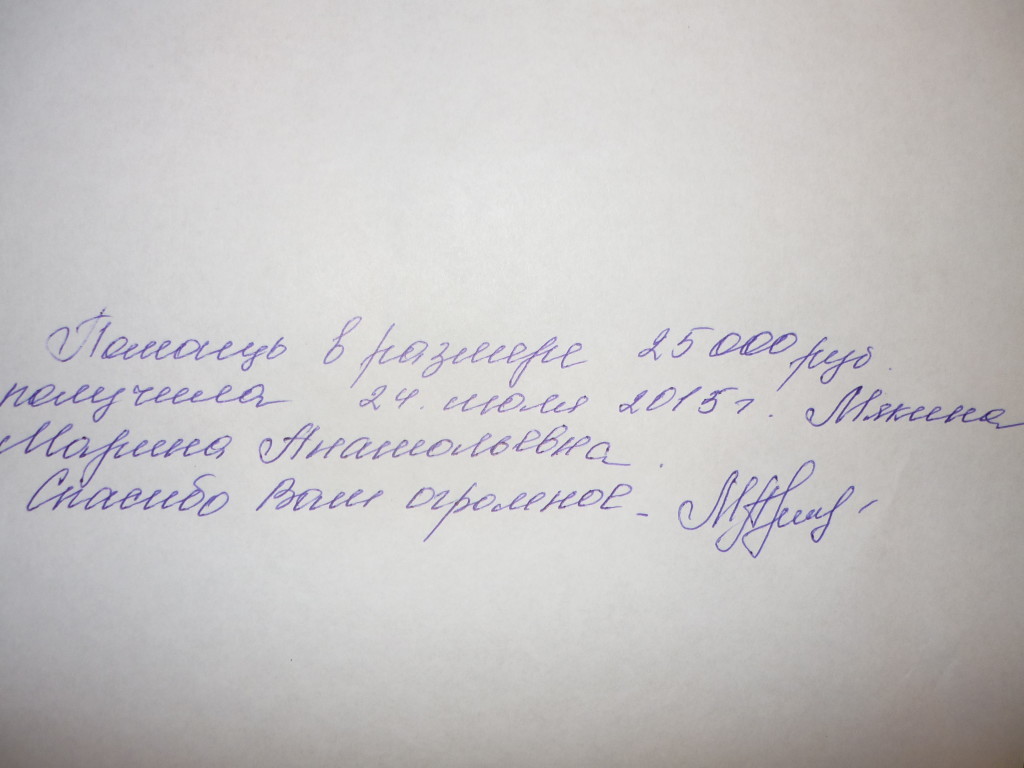 Помощь в размере 25 000 руб.
получила 24. июля 2015 г. Мякина
Марина Анатольевна.
Спасибо Вам огромное -